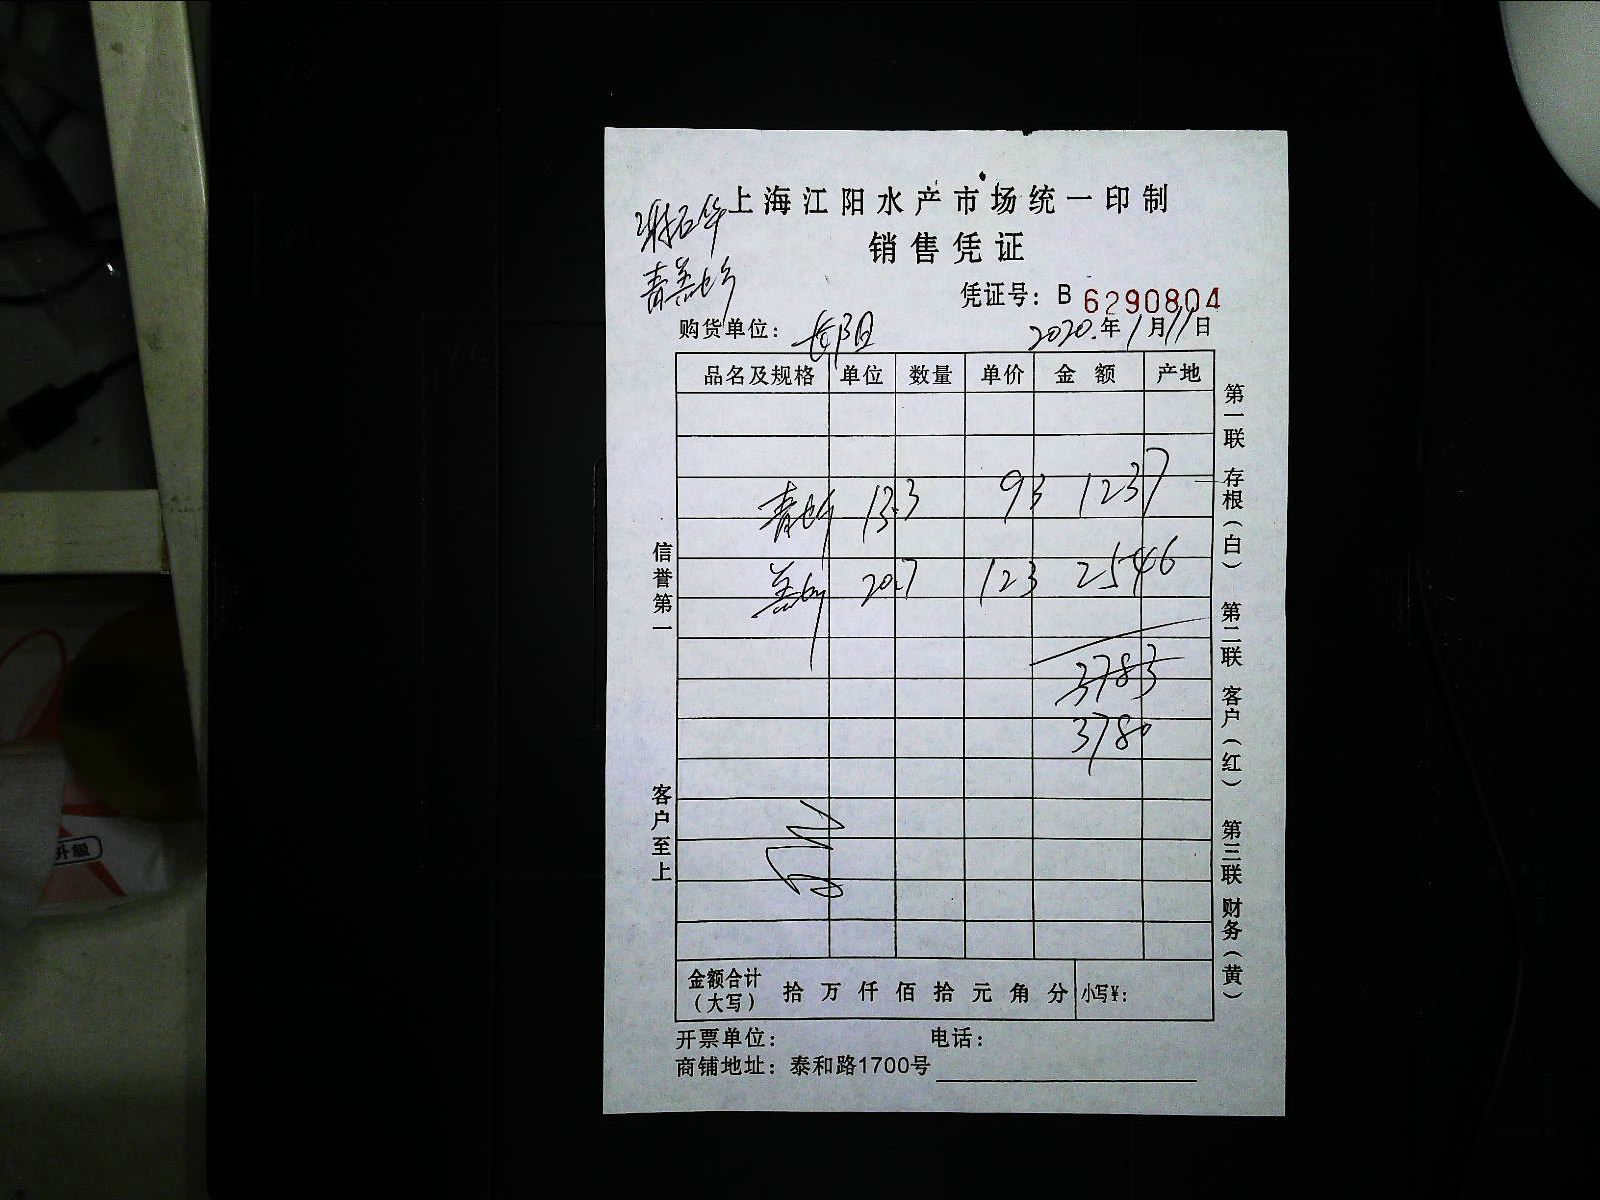 上海江阳水产市场统一印制
销售凭证
凭证号：B 6290804
购货单位：
2020.年1月11日
品名及规格 单位 数量 单价 金额 产地
13.3 93 1237
20.7 123 2546
3783
3780
金额合计（大写） 拾万仟佰拾元角分 小写¥：
开票单位： 电话：
商铺地址：泰和路1700号
信誉第一
客户至上
第一联 存根（白） 第二联 客户（红） 第三联 财务（黄）
升级